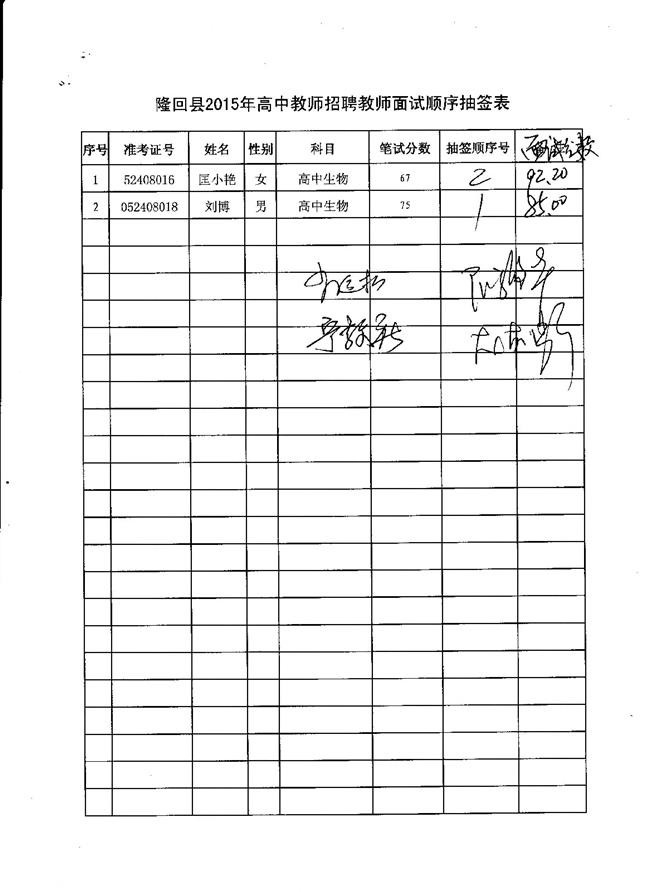 隆回县2015年高中教师招聘教师面试顺序抽签表
序号 准考证号 姓名 性别 科目 笔试分数 抽签顺序号 面试分数
1 52408016 匡小艳 女 高中生物 67 2 92.20
2 052408018 刘博 男 高中生物 75 1 85.00